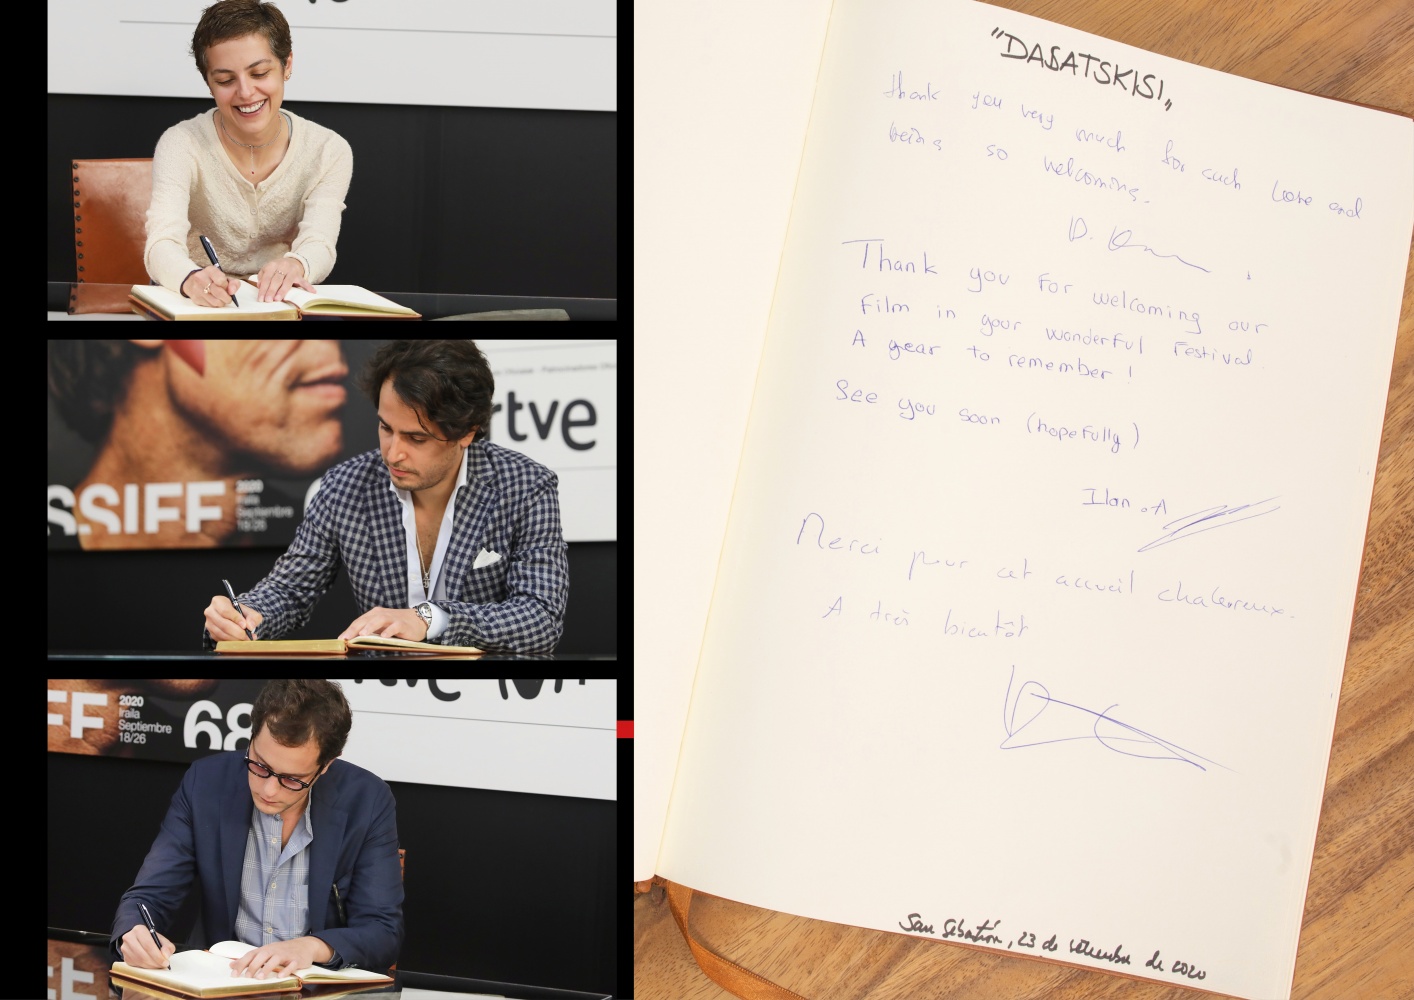 rtve
SSIFF
2020
Iraila
Septiembre
18/26
6
FF
2020
Iraila
Septiembre
18/26
68
"DASATSKISI„
thank you very much for such love and
being so welcoming.
D.
Thank you for welcoming our
film in your wonderful festival
A year to remember !
See you soon (hopefully)
Ilan .A
Merci pour cet accueil chaleureux.
A très bientôt
San Sebastián, 23 de setiembre de 2020